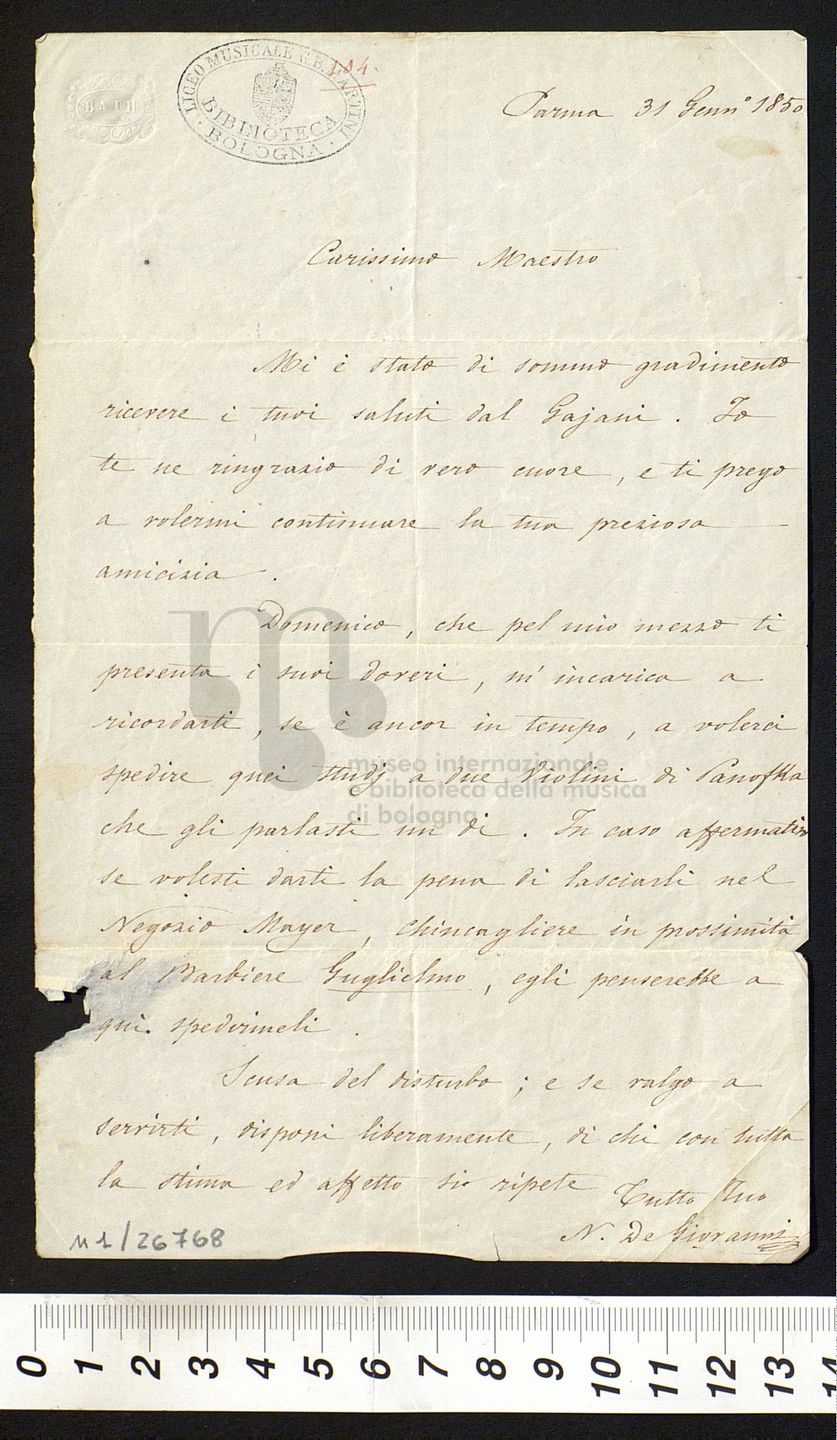 BATH
LICEO MUSICALE G.B. MARTINI
BIBLIOTECA
BOLOGNA
104.
Parma 31 Genn.º 1850
Carissimo Maestro
Mi è stato di sommo gradimento
ricevere i tuoi saluti dal Gajani. Io
te ne ringrazio di vero cuore, e ti prego
a volermi continuare la tua preziosa
amicizia.
Domenico, che pel mio mezzo ti
presenta i suoi doveri, m'incarica a
ricordarti, se è ancor in tempo, a volerci
spedire quei studj a due Violini di Panofka
che gli parlasti un dì. In caso affermativo
se volesti darti la pena di lasciarli nel
Negozio Mayer, Chincagliere in prossimità
al Barbiere Guglielmo, egli penserebbe a
qui spedirmeli.
Scusa del disturbo; e se valgo a
servirti, disponi liberamente, di chi con tutta
la stima ed affetto si ripete
Tutto Tuo
N. De Giovanni
n1/26768
museo internazionale
e biblioteca della musica
di bologna
0 1 2 3 4 5 6 7 8 9 10 11 12 13 14